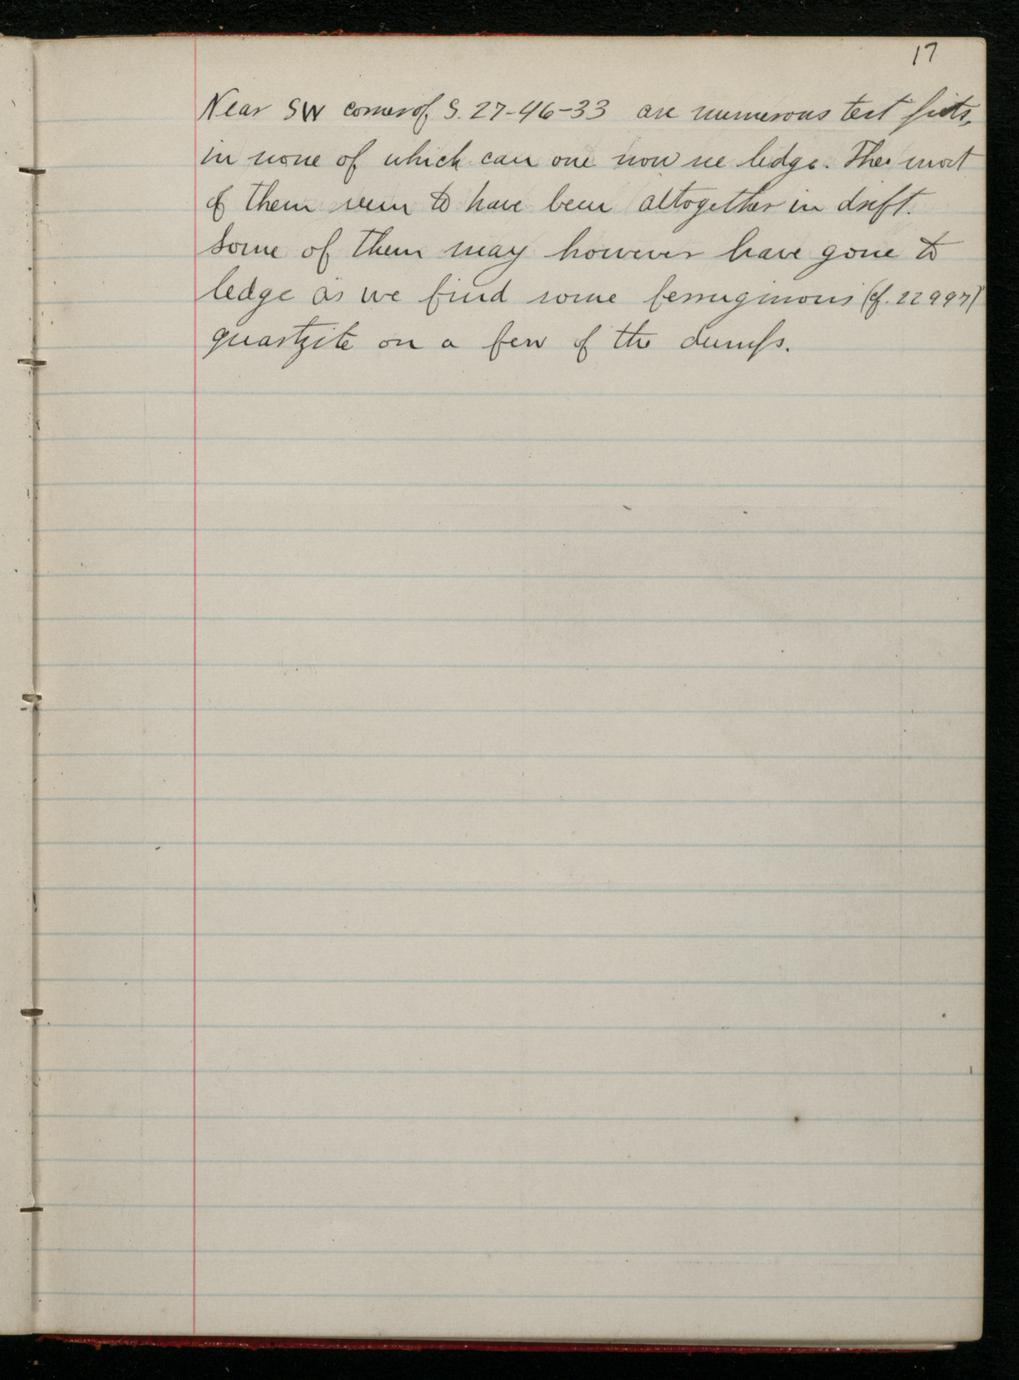 17
Near SW corner of S. 27-46-33 are numerous test pits,
in none of which can one now see ledge. The most
of them seem to have been altogether in drift.
Some of them may however have gone to
ledge as we find some ferruginous (cf. 22997)
quartzite on a few of the dumps.